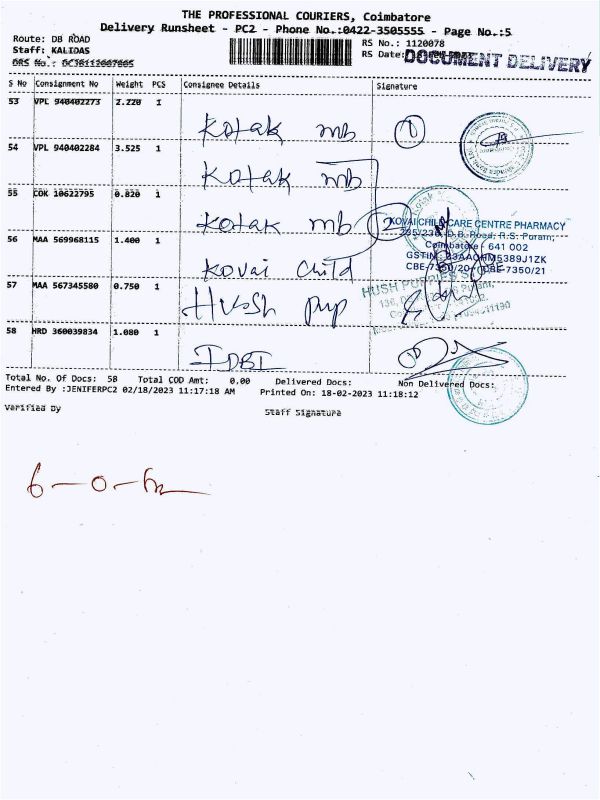 THE PROFESSIONAL COURIERS, Coimbatore
Delivery Runsheet - PC2 - Phone No.:0422-3505555 - Page No.:5
Route: DB ROAD
RS No.: 1120078
Staff: KALIDAS
RS Date:
DOCUMENT DELIVERY
DRS No.:
S No Consignment No Weight PCS Consignee Details Signature
53 VPL 940402273 2.220 1
Kotak mb 1
54 VPL 940402284 3.525 1
Kotak mb
55 COK 10622795 0.820 1
Kotak mb 2
KOVAI CHILD CARE CENTRE PHARMACY
235/236, D.B. Road, R.S. Puram,
Coimbatore - 641 002
56 MAA 569968115 1.400 1
GSTIN:
CBE-7350/20 CBE-7350/21
Kovai Child
57 MAA 567345580 0.750 1
HUSH PUPPIES
Hush pup
58 HRD 360039834 1.080 1
IDBI
Total No. Of Docs: 58 Total COD Amt: 0.00 Delivered Docs: Non Delivered Docs:
Entered By :JENIFERPC2 02/18/2023 11:17:18 AM Printed On: 18-02-2023 11:18:12
Verified By Staff Signature